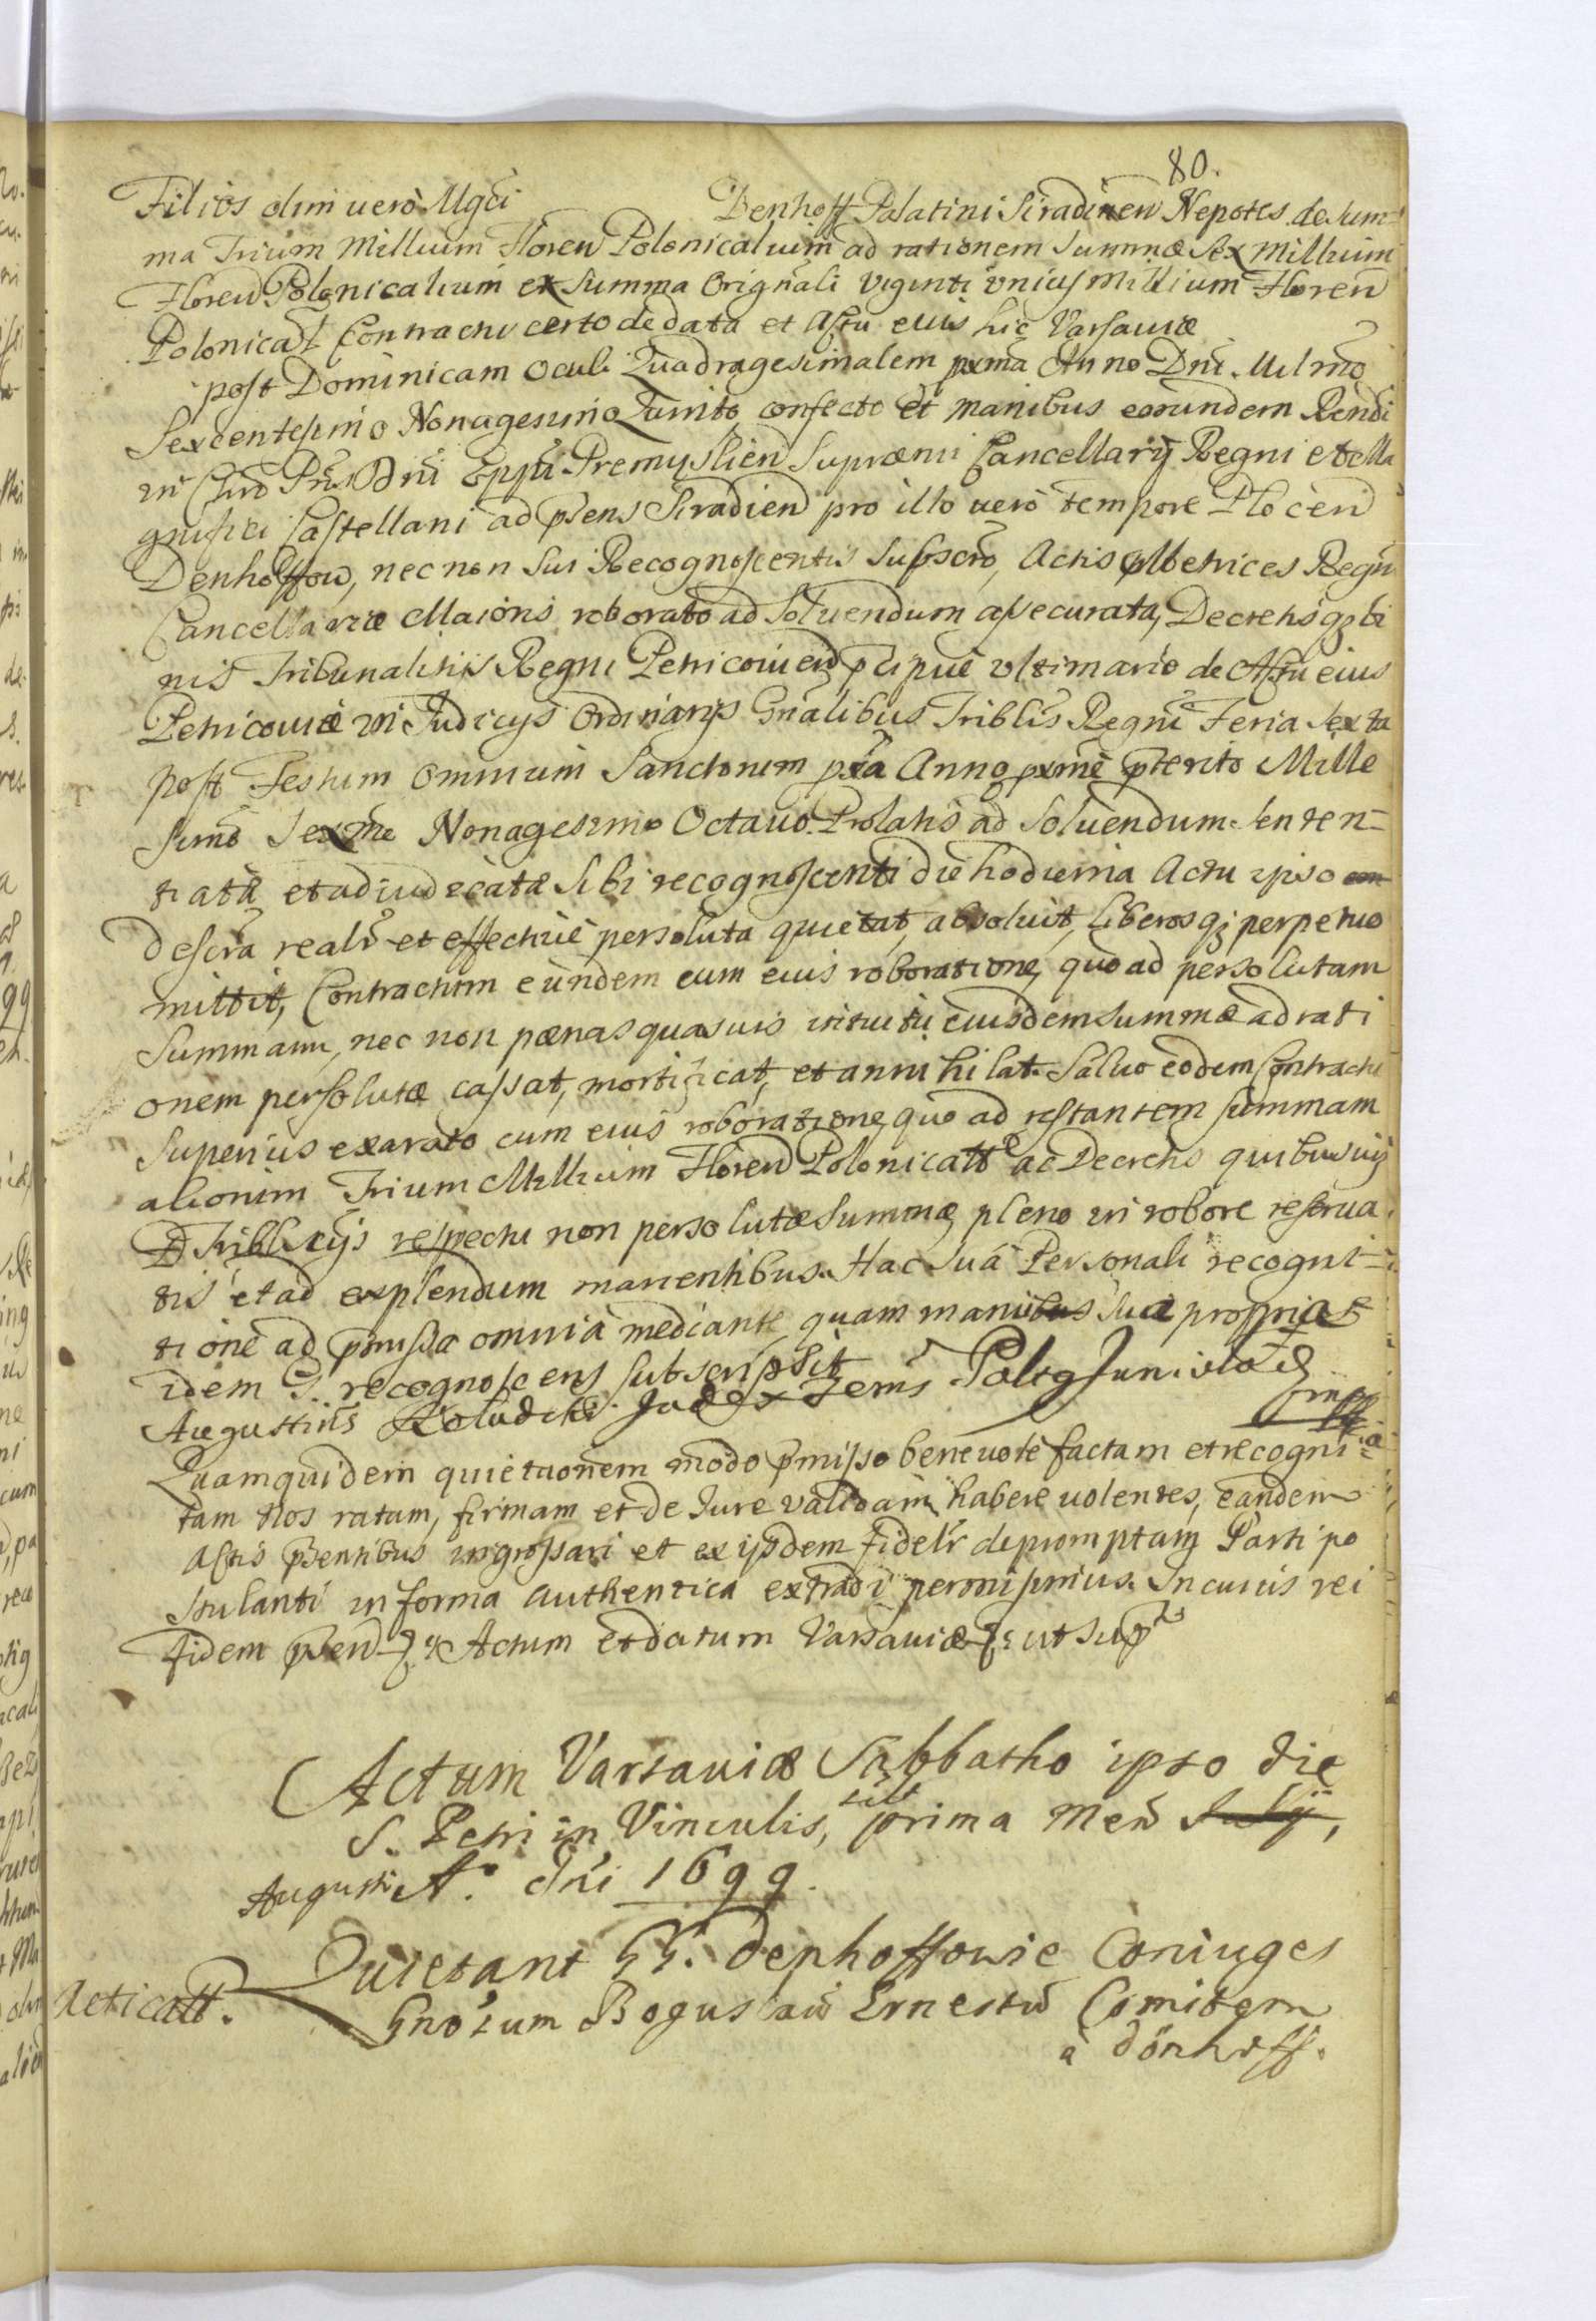 80.
Filios olim vero Mgci Denhoff Palatini Siradien Nepotes de Sum-
ma Trium Millium Floren Polonicalium ad rationem Summæ Sex Millium
Floren Polonicalium ex Summa Originali viginti unius Millium Floren
Polonical Contractu certo de data et Actu eius hic Varsaviæ
post Dominicam Oculi Quadragesimalem pxma Anno Dni Millmo
Sexcentesimo Nonagesimo Quinto confecto et manibus eorundem Rendi
in Chro Pris Dni Eppi Premyslien Supremi Cancellarij Regni et Ma
gnifici Castellani ad psens Siradien pro illo vero tempore Plocen
Denhoffow, nec non sui Recognoscentis subscro, Actis Metrices Regni
Cancellariæ Maioris roborato ad Soluendum assecurata, Decretisq bi
nis Tribunalitijs Regni Petricovien pcipue ultimario de Actu eius
Petricoviæ in Judicijs Ordinarijs Gnalibus Triblis Regni Feria Sexta
post Festum Omnium Sanctorum pxa Anno pxme pterito Mille
simo Sexme Nonagesimo Octavo Prolatis ad Soluendum senten-
tiata et adiudicata sibi recognoscenti die hodierna Actu ipso
descra realr et effective persoluta quietat, absoluit, liberosq perpetuo
mittit, Contractum eundem cum eius roboratione, quo ad persolutam
Summam, nec non pœnas quasuis intuitu eiusdem summæ ad rati
onem persolutæ cassat, mortificat, et annihilat. Saluo eodem Contractu
superius exarato cum eius roboratione quo ad restantem summam
aliorum Trium Millium Floren Polonicall ac Decretis quibusuis
Triblicijs respectu non persolutæ summæ, pleno in robore reserva
tis et ad explendum manentibus. Hac sua Personali recogni-
tione ad pmissa omnia mediante, quam manu sua propria
idem G. recognoscens subscripsit
Augustins Koludzki Judex Terris Junivladis
mpp
Quamquidem quietationem modo pmisso benevole factam et recogni
tam Nos ratam, firmam et de Jure validam habere uolentes, eandem
Actis psentibus ingrossari et ex ijsdem fidelr depromptam Parti po
stulanti in forma authentica extradi permisimus. In cuius rei
fidem psen Actum et datum Varsaviæ ut supra
Actum Varsaviæ Sabbatho ipso die
S. Petri in Vinculis, prima Men July,
Augusti Ao. dni 1699.
Acticatt.
Quietant GG. Denhoffowie Coniuges
Gnosum Boguslaw Ernestu Comitem
a Dönhoff.